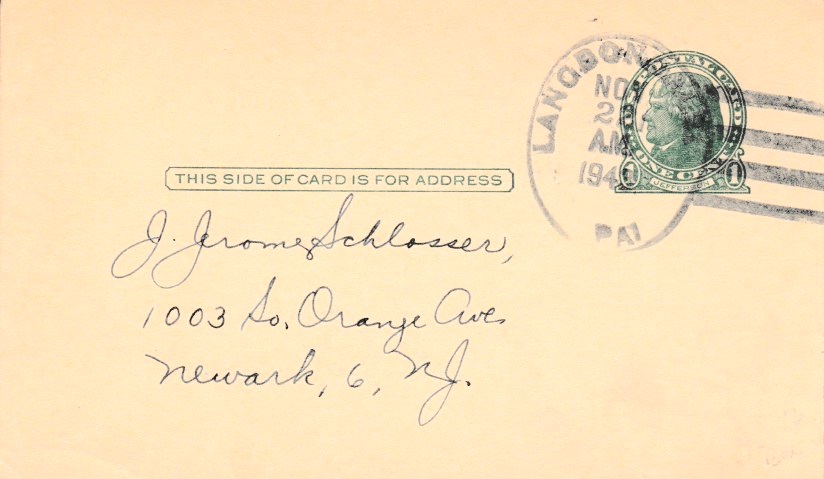 LANGDON
NO
2
AM
194
PA
U.S. POSTAL CARD
ONE CENT
1 JEFFERSON 1
THIS SIDE OF CARD IS FOR ADDRESS
J. Jerome Schlosser,
1003 So. Orange Ave
Newark, 6, N.J.